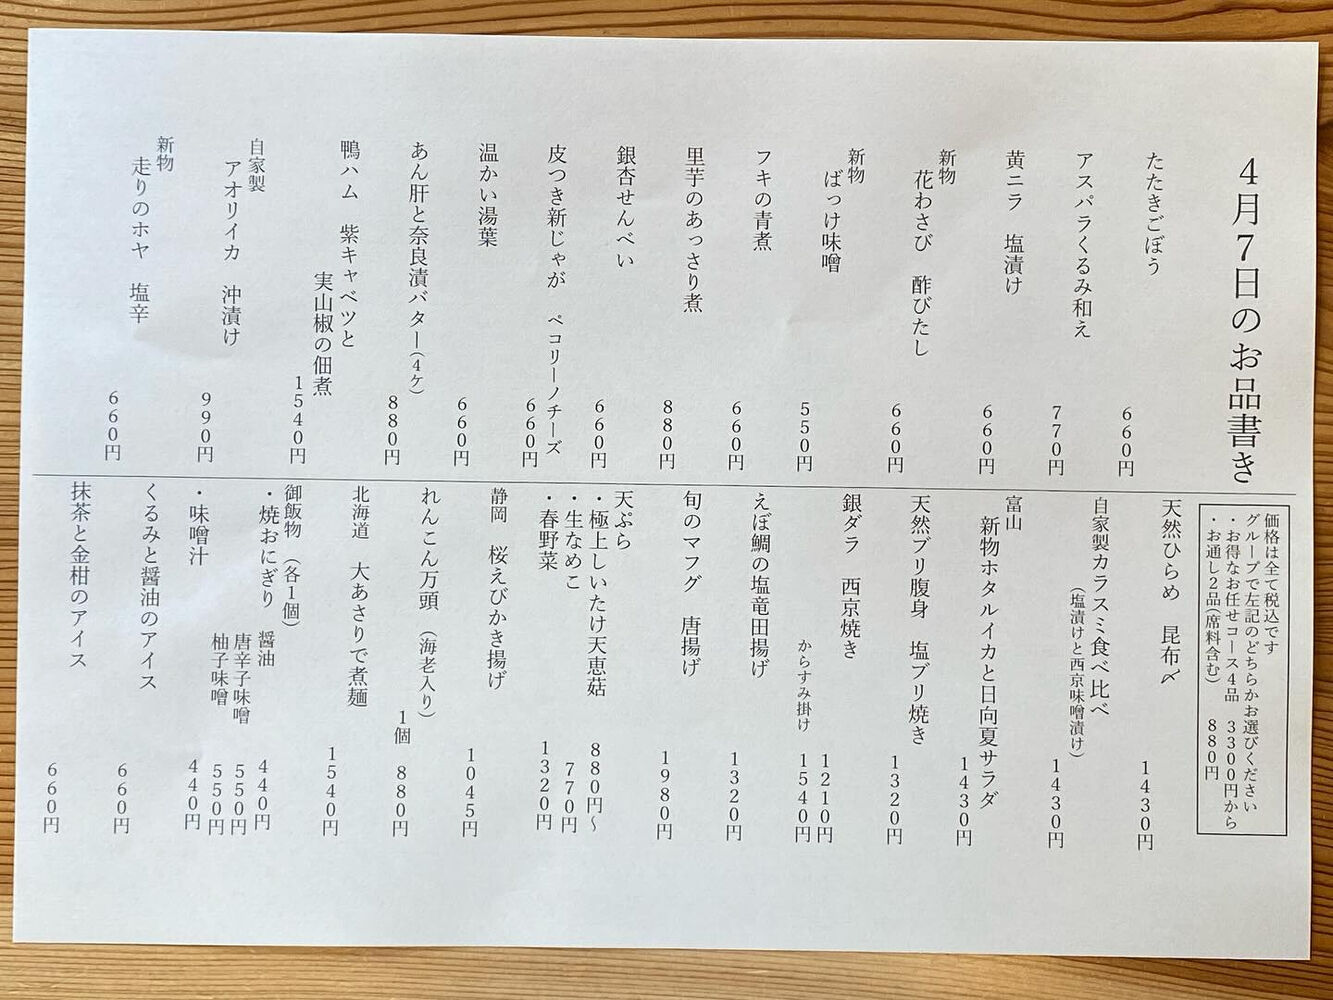 4月7日のお品書き
たたきごぼう
660円
アスパラくるみ和え
770円
黄ニラ 塩漬け
660円
新物
花わさび 酢びたし
660円
新物
ばっけ味噌
550円
フキの青煮
660円
里芋のあっさり煮
880円
銀杏せんべい
660円
皮つき新じゃが ペコリーノチーズ
660円
温かい湯葉
660円
あん肝と奈良漬バター(4ケ)
880円
鴨ハム 紫キャベツと
実山椒の佃煮
1540円
自家製
アオリイカ 沖漬け
990円
新物
走りのホヤ 塩辛
660円
価格は全て税込です
グループで左記のどちらかお選びください
・お得なお任せコース4品 3300円から
・お通し2品(席料含む) 880円
天然ひらめ 昆布〆
1430円
自家製カラスミ食べ比べ
(塩漬けと西京味噌漬け)
1430円
富山
新物ホタルイカと日向夏サラダ
1430円
天然ブリ腹身 塩ブリ焼き
1320円
銀ダラ 西京焼き
1210円
からすみ掛け 1540円
えぼ鯛の塩竜田揚げ
1320円
旬のマフグ 唐揚げ
1980円
天ぷら
・極上しいたけ天恵菇 880円〜
・生なめこ 770円
・春野菜 1320円
静岡 桜えびかき揚げ
1045円
れんこん万頭 (海老入り)
1個 880円
北海道 大あさりで煮麺
1540円
御飯物 (各1個)
・焼おにぎり 醤油 440円
唐辛子味噌 550円
柚子味噌 550円
・味噌汁 440円
くるみと醤油のアイス
660円
抹茶と金柑のアイス
660円